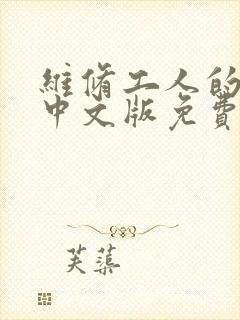 維脩工人的
中文版免費
芙蕖